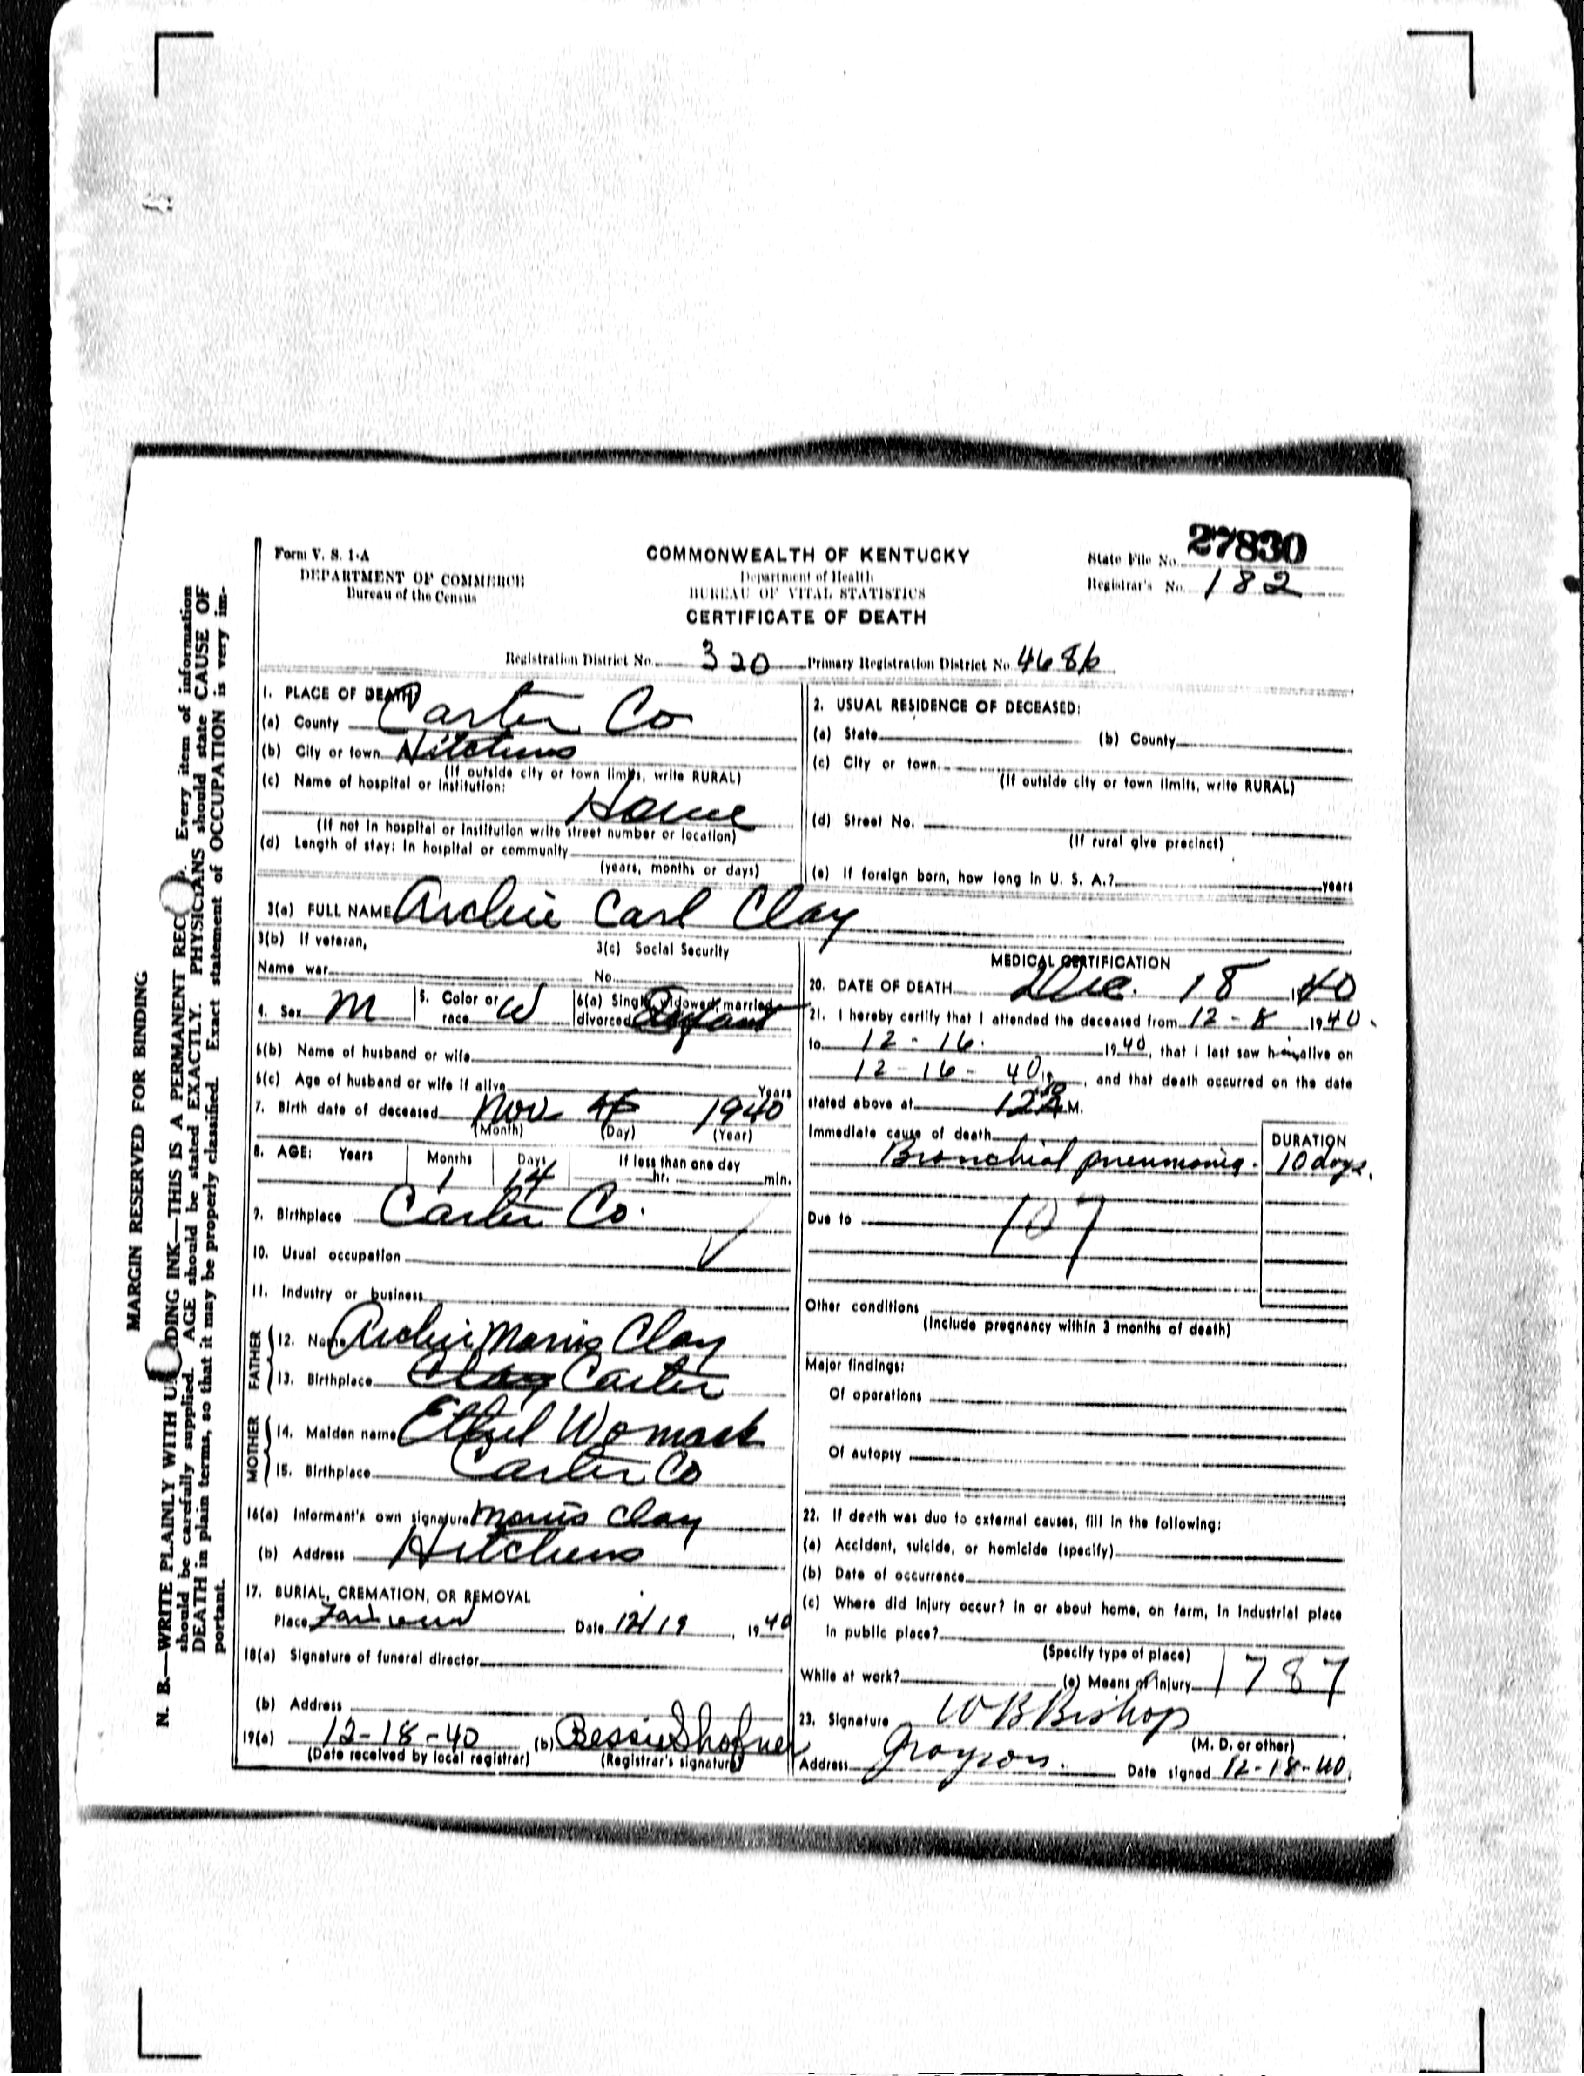 MARGIN RESERVED FOR BINDING
N. B.—WRITE PLAINLY WITH DING INK—THIS IS A PERMANENT REC Every item of information
should be carefully supplied. AGE should be stated EXACTLY. PHYSICIANS should state CAUSE OF
DEATH in plain terms, so that it may be properly classified. Exact statement of OCCUPATION is very im-
portant.
Form V. S. 1-A
DEPARTMENT OF COMMERCE
Bureau of the Census
COMMONWEALTH OF KENTUCKY
Department of Health
BUREAU OF VITAL STATISTICS
CERTIFICATE OF DEATH
State File No. 27830
Registrar's No. 182
Registration District No. 320 Primary Registration District No. 4686
1. PLACE OF DEATH
(a) County Carter Co
(b) City or town Hitchins
(If outside city or town limits, write RURAL)
(c) Name of hospital or institution:
Home
(If not in hospital or institution write street number or location)
(d) Length of stay: In hospital or community
(years, months or days)
2. USUAL RESIDENCE OF DECEASED:
(a) State (b) County
(c) City or town
(If outside city or town limits, write RURAL)
(d) Street No.
(If rural give precinct)
(e) If foreign born, how long in U. S. A.? years
3(a) FULL NAME Archie Carl Clay
3(b) If veteran,
Name war
3(c) Social Security
No.
4. Sex M
5. Color or race W
6(a) Single, widowed, married, divorced Infant
6(b) Name of husband or wife
6(c) Age of husband or wife if alive Years
7. Birth date of deceased Nov 4 1940
(Month) (Day) (Year)
8. AGE: Years Months Days If less than one day
1 14 hr. min.
9. Birthplace Carter Co.
10. Usual occupation
11. Industry or business
FATHER
12. Name Archie Morris Clay
13. Birthplace Clay Carter
MOTHER
14. Maiden name Ethel Womack
15. Birthplace Carter Co
16(a) Informant's own signature Morris Clay
(b) Address Hitchens
17. BURIAL, CREMATION, OR REMOVAL
Place Date 12/19, 1940
18(a) Signature of funeral director
(b) Address
19(a) 12-18-40 (b) Bessie Shofner
(Date received by local registrar) (Registrar's signature)
MEDICAL CERTIFICATION
20. DATE OF DEATH Dec. 18 1940
21. I hereby certify that I attended the deceased from 12-8 1940.
to 12-16. 1940, that I last saw him alive on
12-16-40 19, and that death occurred on the date
stated above at 12 M.
Immediate cause of death
DURATION
Bronchial pneumonia. 10 days.
Due to 107
Other conditions
(Include pregnancy within 3 months of death)
Major findings:
Of operations
Of autopsy
22. If death was due to external causes, fill in the following:
(a) Accident, suicide, or homicide (specify)
(b) Date of occurrence
(c) Where did injury occur? In or about home, on farm, in industrial place
in public place?
(Specify type of place)
While at work? (e) Means of injury 1787
23. Signature W B Bishop
(M. D. or other)
Address Grayson. Date signed 12-18-40.